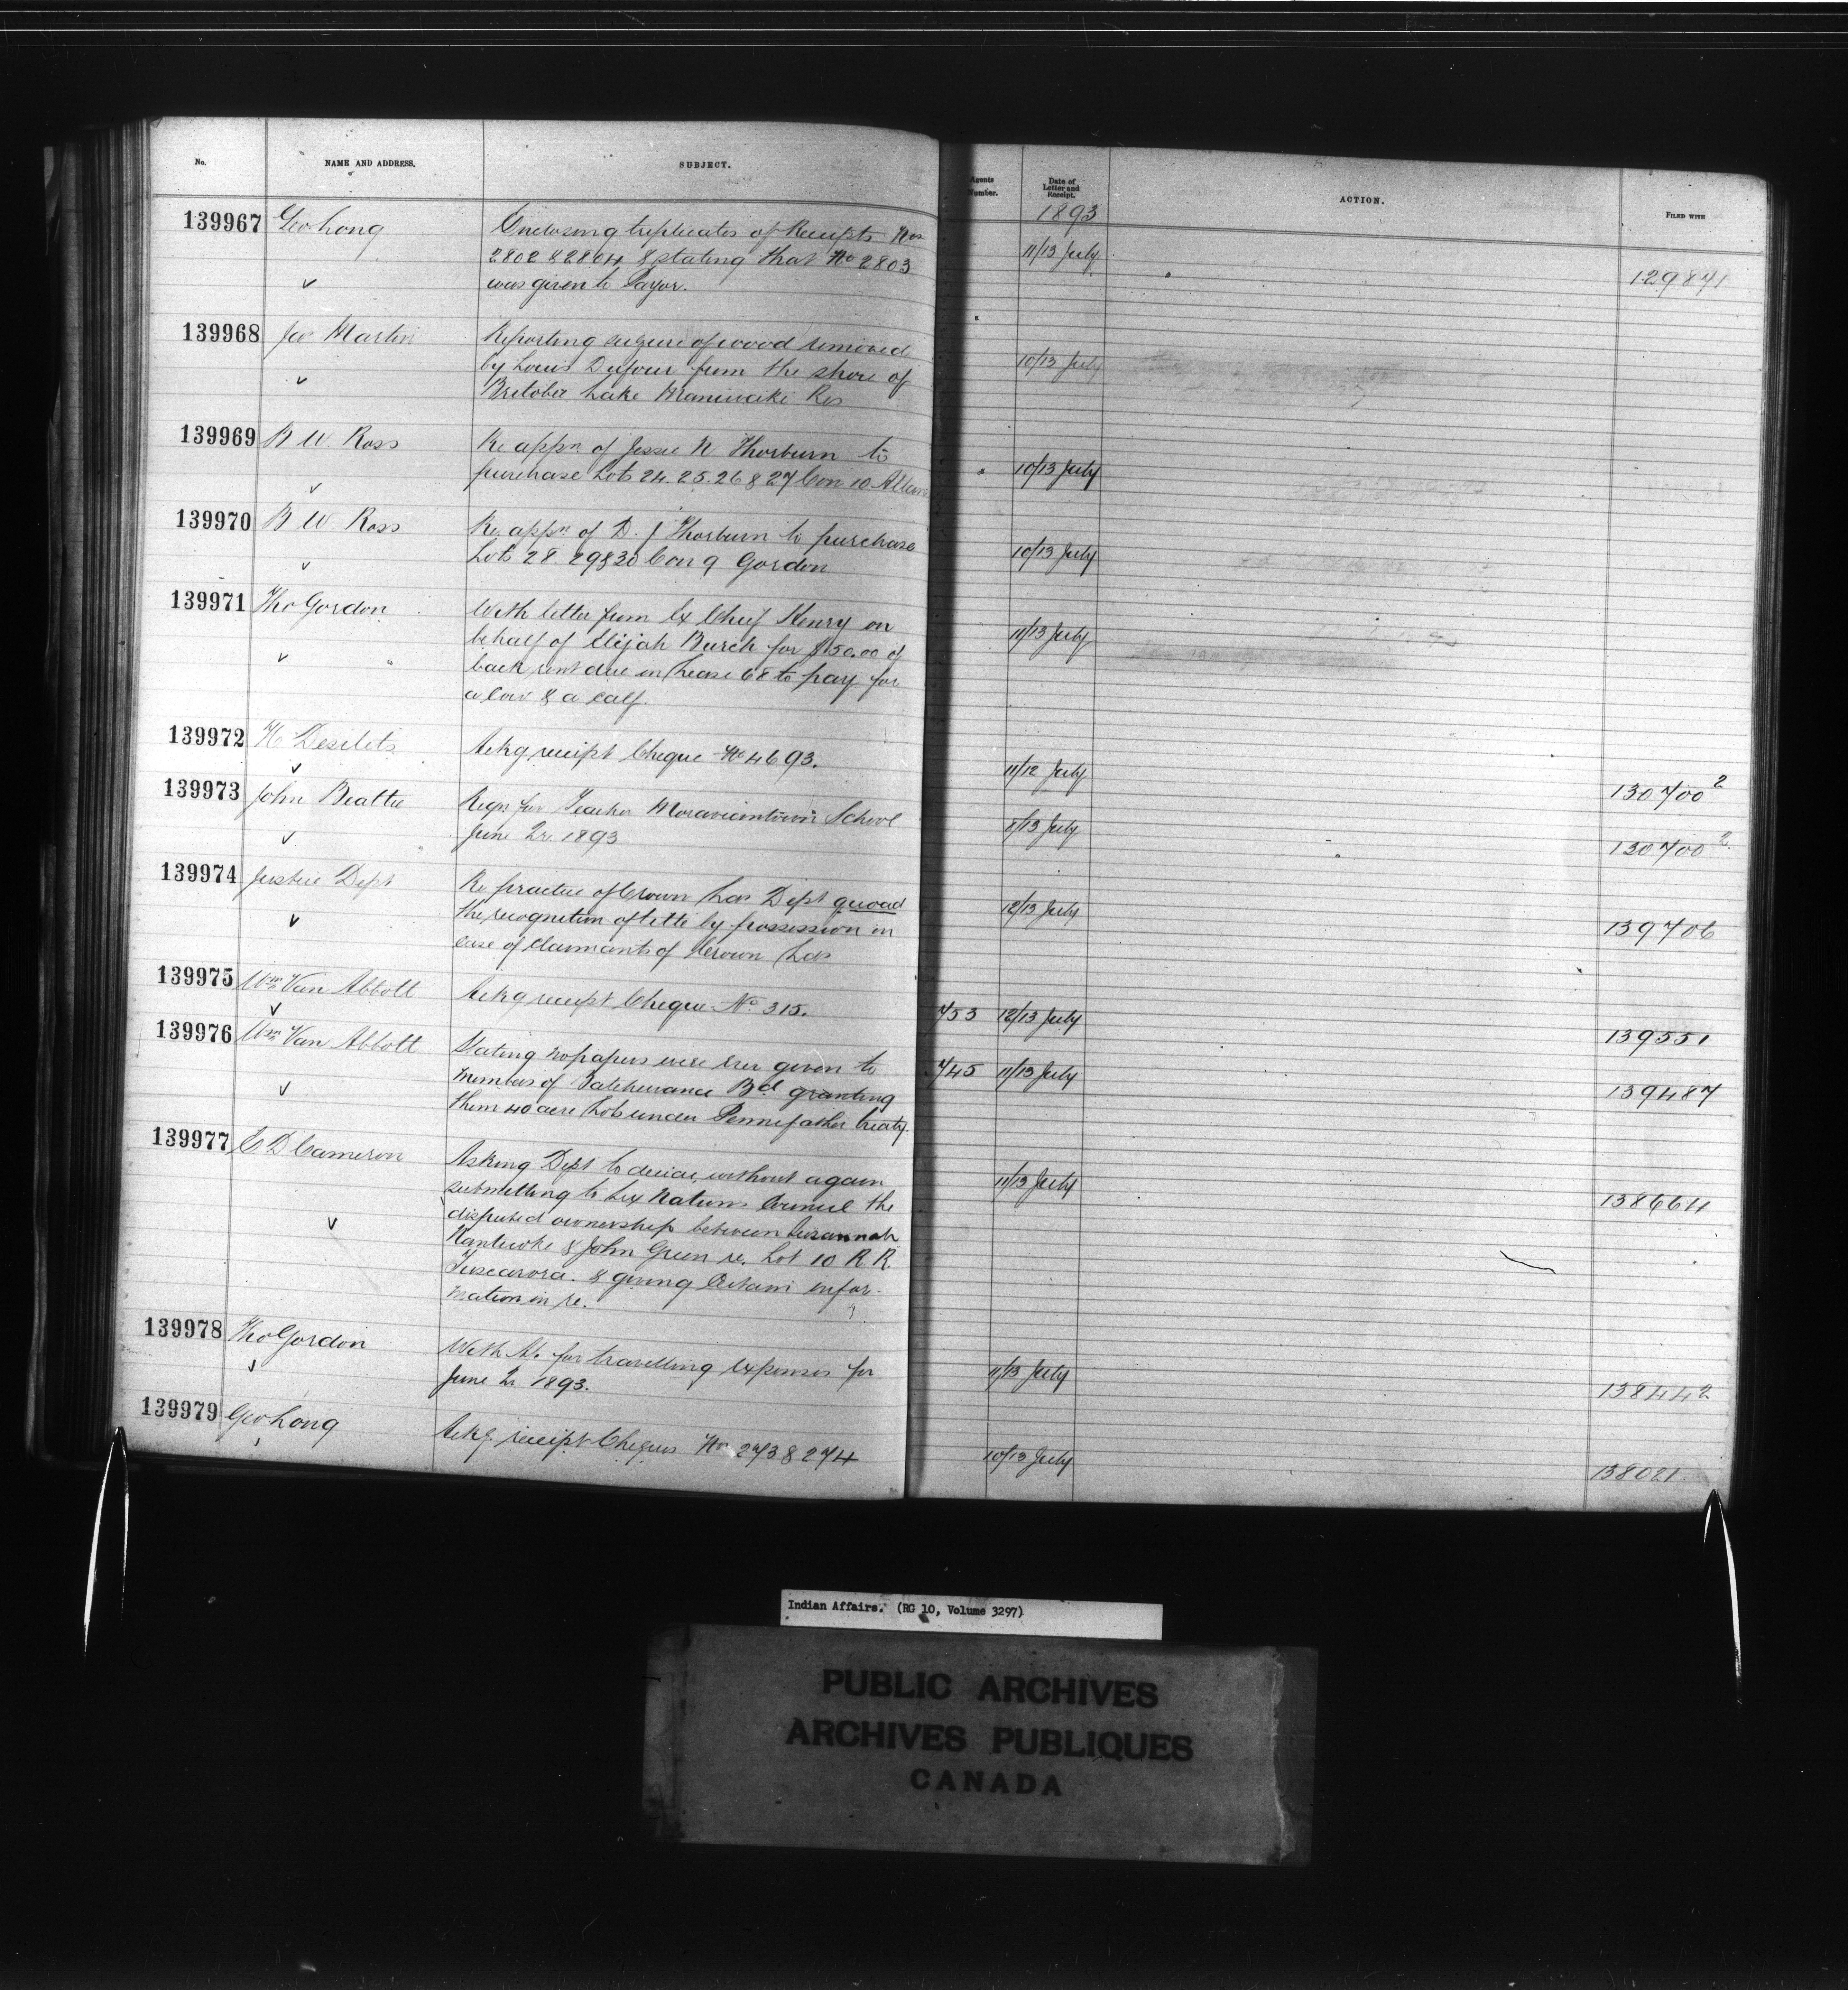 No. NAME AND ADDRESS. SUBJECT. Agents Number. Date of Letter and Receipt. ACTION. FILED WITH
1893
139967 Geo Long Enclosing triplicates of Receipts Nos
2802 & 2804 & stating that No 2803 11/13 July
was given to Payor. 129871
139968 Jas Martin Reporting seizure of wood removed
by Louis Dufour from the shore of 10/13 July
Bitobi Lake Maniwaki Res
139969 B W Ross Re appn of Jessie N Thorburn to
purchase Lots 24. 25. 26 & 27 Con 10 Allan 10/13 July
139970 B W Ross Re appn of D. J Thorburn to purchase
Lots 28. 29 & 30 Con 9 Gordon 10/13 July
139971 Tho Gordon With letter from Ex Chief Henry on
behalf of Elijah Burch for $50.00 of 11/13 July
back rent due on Lease 68 to pay for
a Cow & a calf.
139972 H Desilets Ackg receipt Cheque No 4693. 11/12 July 130700 2
139973 John Beattie Reqn for Teacher Moraviantown School
June Qr 1893 8/13 July 130700 2
139974 Justice Dept Re practice of Crown Lds Dept quoad
the recognition of title by possession in 12/13 July 139706
case of Claimants of Crown Lds
139975 Wm Van Abbott Ackg receipt Cheque No. 315. 753 12/13 July 139551
139976 Wm Van Abbott Stating no papers were ever given to
members of Batchewana Bd granting 745 11/13 July 139487
them 40 acre Lots under Pennefather treaty.
139977 E D Cameron Asking Dept to decide, without again
submitting to Six Nations Council the 11/13 July 138664
disputed ownership between Susannah
Nanticoke & John Green re. Lot 10 R. R.
Tuscarora. & giving Certain infor-
mation in re.
139978 Tho Gordon With A/c for travelling Expenses for
June Qr 1893. 11/13 July 138442
139979 Geo Long Ackg. receipt Cheques Nos 273 & 274 10/13 July 138021
Indian Affairs. (RG 10, Volume 3297)
PUBLIC ARCHIVES
ARCHIVES PUBLIQUES
CANADA